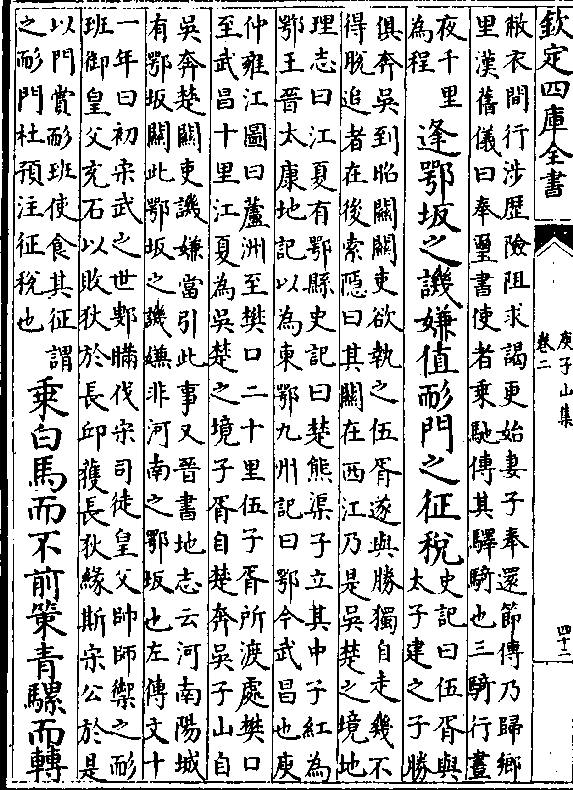 欽定四庫全書
庾子山集
卷二
四十二
敝衣間行涉歷險阻求謁更始妻子奉還節傳乃歸鄉
里漢舊儀曰奉璽書使者乘馳傳其驛騎也三騎行晝
夜千里
為程
逢鄂坂之譏嫌值耏門之征稅
史記曰伍胥與
太子建之子勝
俱奔吳到昭關關吏欲執之伍胥遂與勝獨自走幾不
得脫追者在後索隱曰其關在西江乃是吳楚之境地
理志曰江夏有鄂縣史記曰楚熊渠子立其中子紅為
鄂王晉太康地記以為東鄂九州記曰鄂今武昌也庾
仲雍江圖曰蘆洲至樊口二十里伍子胥所渡處樊口
至武昌十里江夏為吳楚之境子胥自楚奔吳子山自
吳奔楚關吏譏嫌當引此事又晉書地志云河南陽城
有鄂坂關此鄂坂之譏嫌非河南之鄂坂也左傳文十
一年曰初宋武之世鄋瞞伐宋司徒皇父帥師禦之耏
班御皇父充石以敗狄於長邱獲長狄緣斯宋公於是
以門賞耏班使食其征謂
之耏門杜預注征稅也
乘白馬而不前策青騾而轉